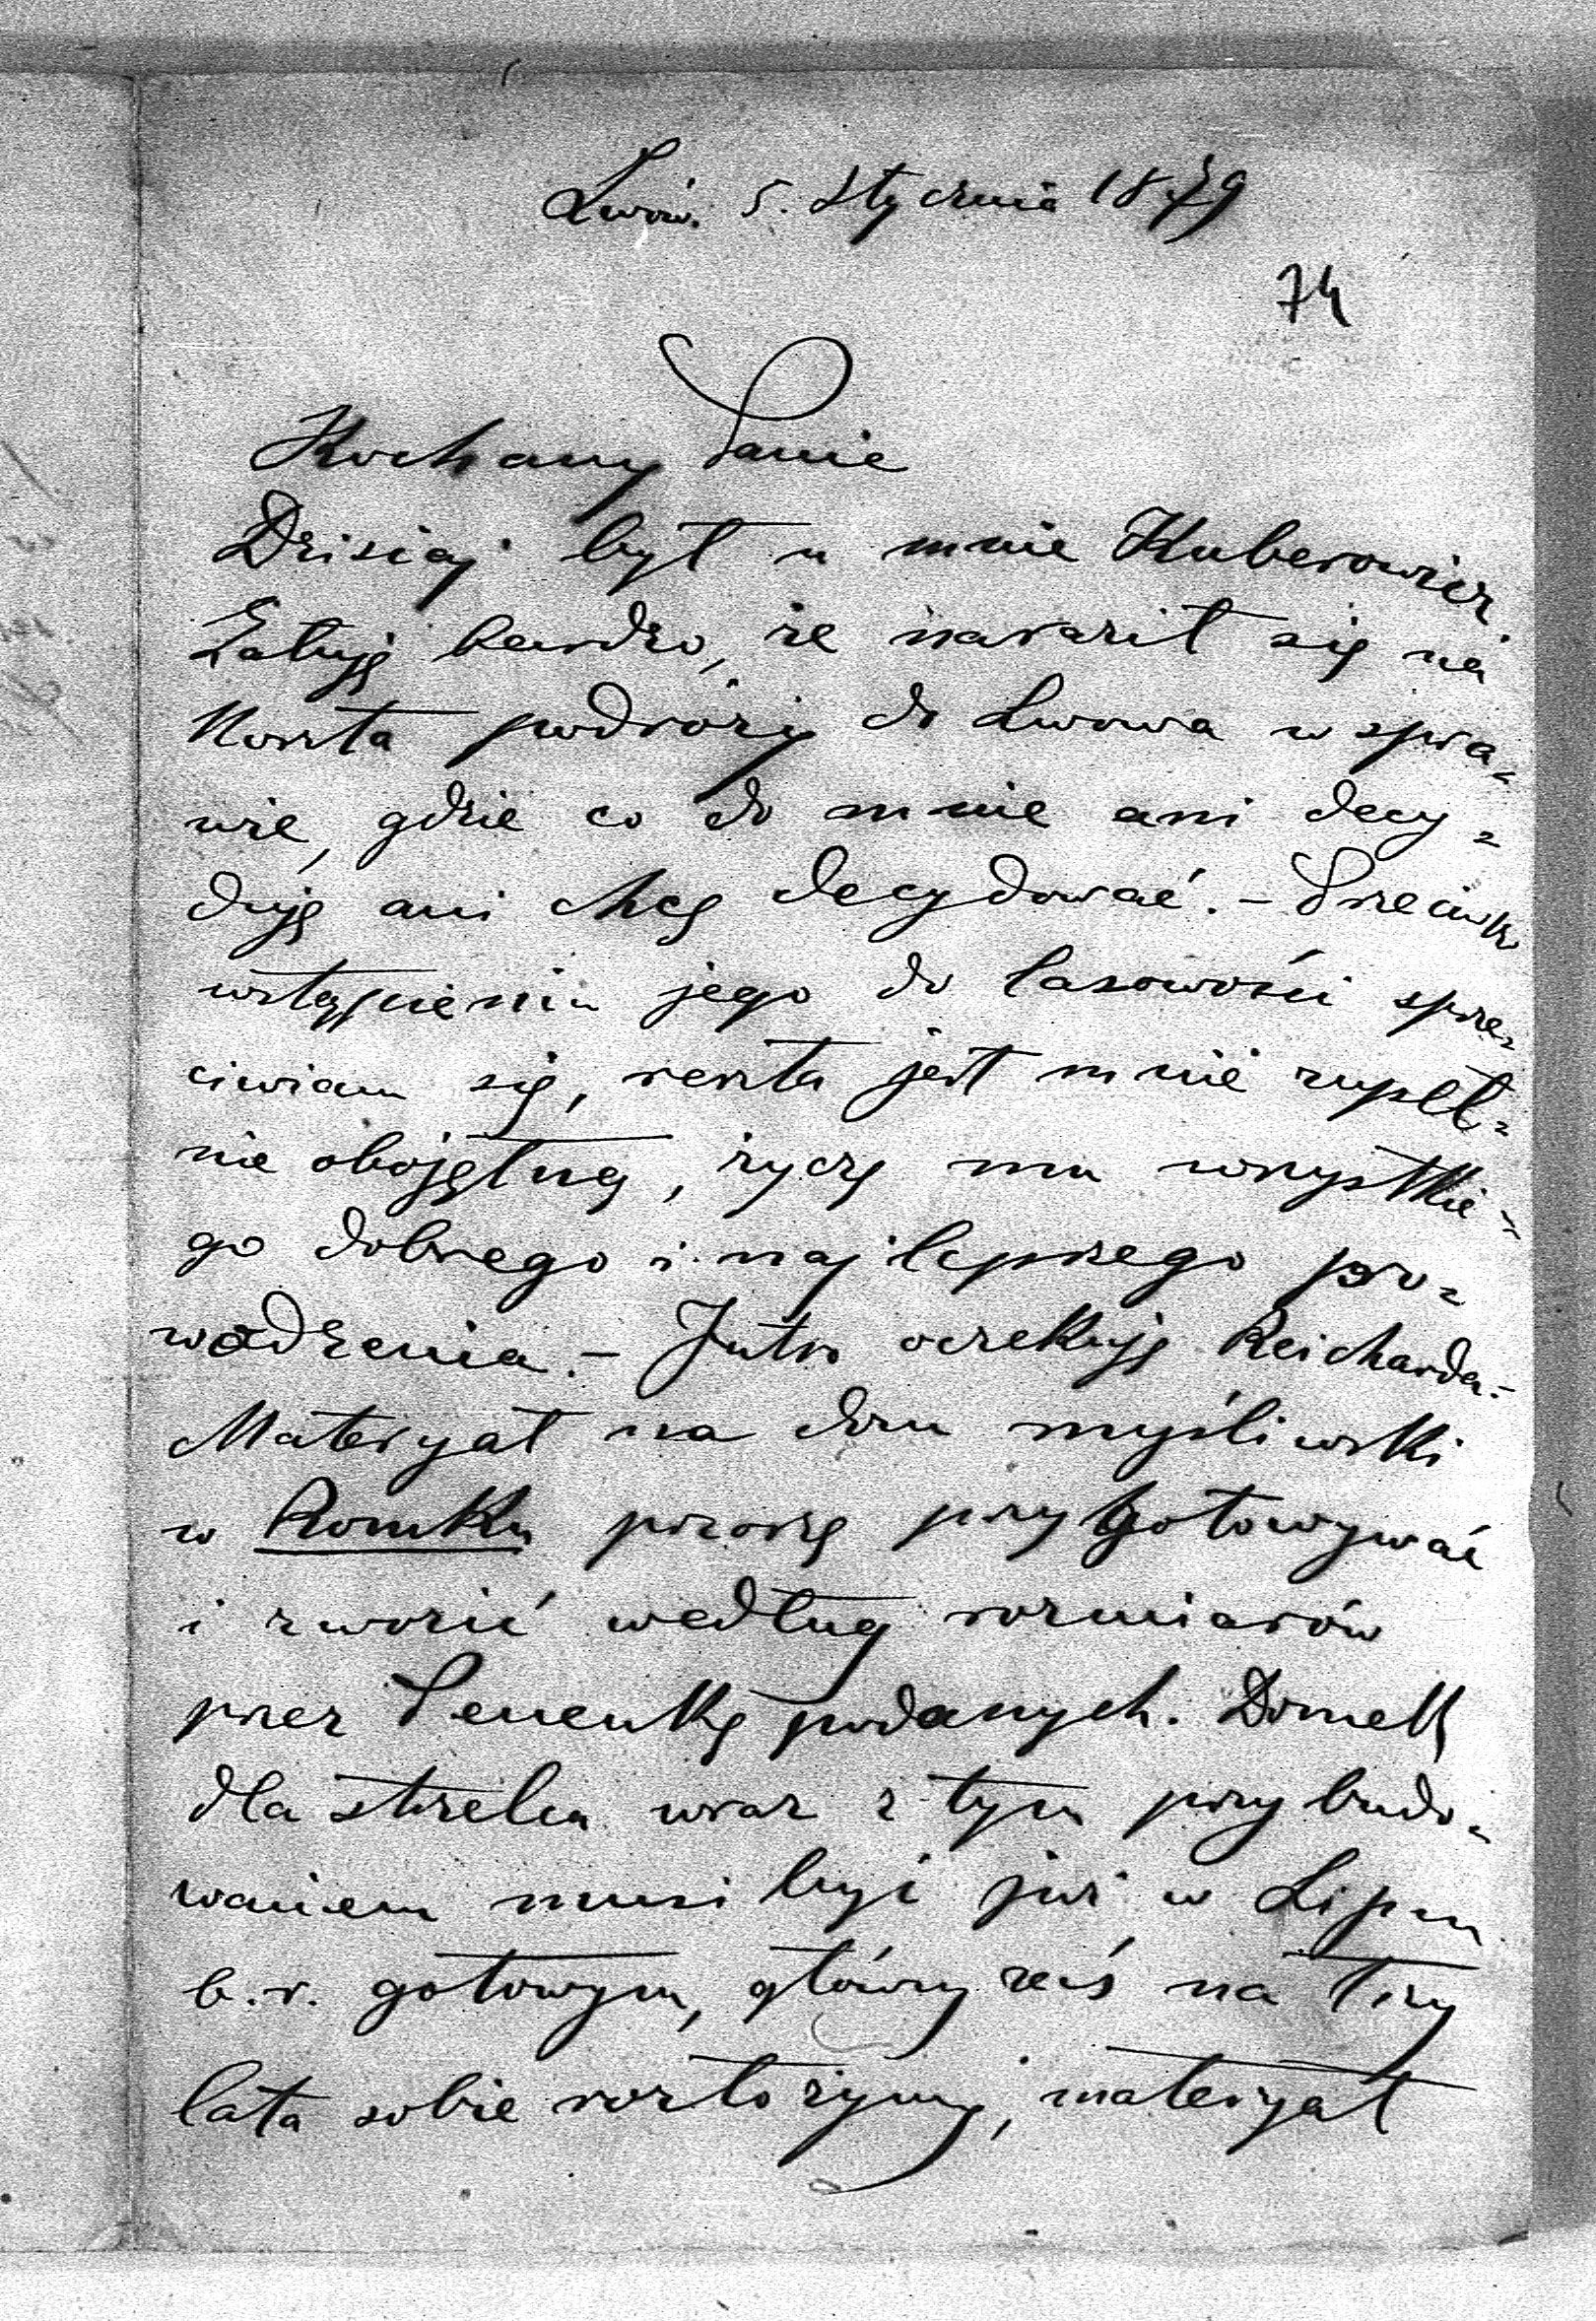 Lwów. 5. Stycznia 1879
74
Kochany Panie
Dzisiaj był u mnie Kuberowicz.
Żałuję bardzo, że naraził się na
Koszta podróży do Lwowa w spra-
wie, gdzie co do mnie ani decy-
duję ani chcę decydować. - Przeciwko
wstąpieniu jego do lasowości sprze-
ciwiam się, reszta jest mnie zupeł-
nie obojętną, życzę mu wszystkie-
go dobrego i najlepszego po-
wodzenia. - Jutro oczekuję Reicharda. -
Materyał na dom myśliwski
w Romku proszę przygotowywać
i zwozić według rozmiarów
przez podanych. Domek
dla strzelca wraz z tym przybudo-
waniem musi być już w Lipcu
b.r. gotowym, główny zaś na trzy
lata sobie rozłożymy, materyał